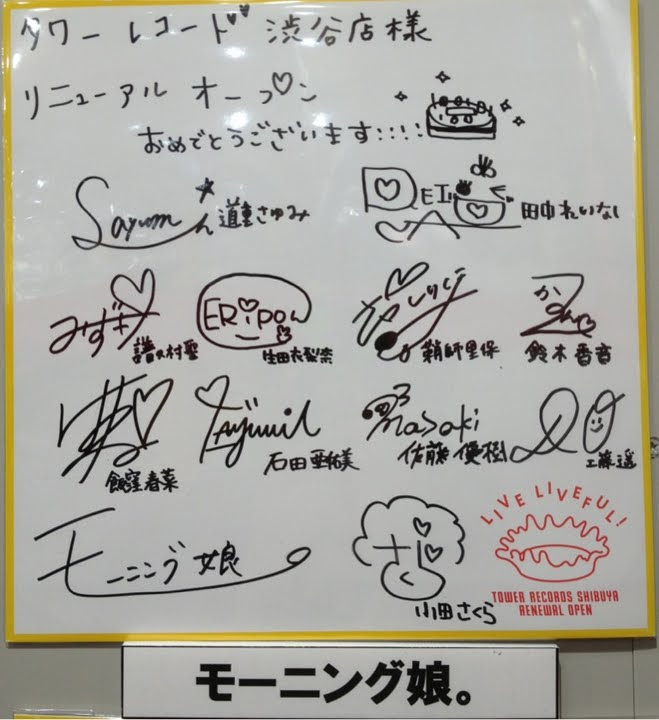 タワーレコード 渋谷店様
リニューアル オープン
おめでとうございます::::
Sayumin 道重さゆみ
REI 田中れいな
みずき 譜久村聖
ERiPOn 生田衣梨奈
りほ 鞘師里保
かのん 鈴木香音
飯窪春菜
Ayumi 石田亜佑美
masaki 佐藤優樹
工藤遥
モーニング娘
小田さくら
LIVE LIVEFUL!
TOWER RECORDS SHIBUYA
RENEWAL OPEN
モーニング娘。